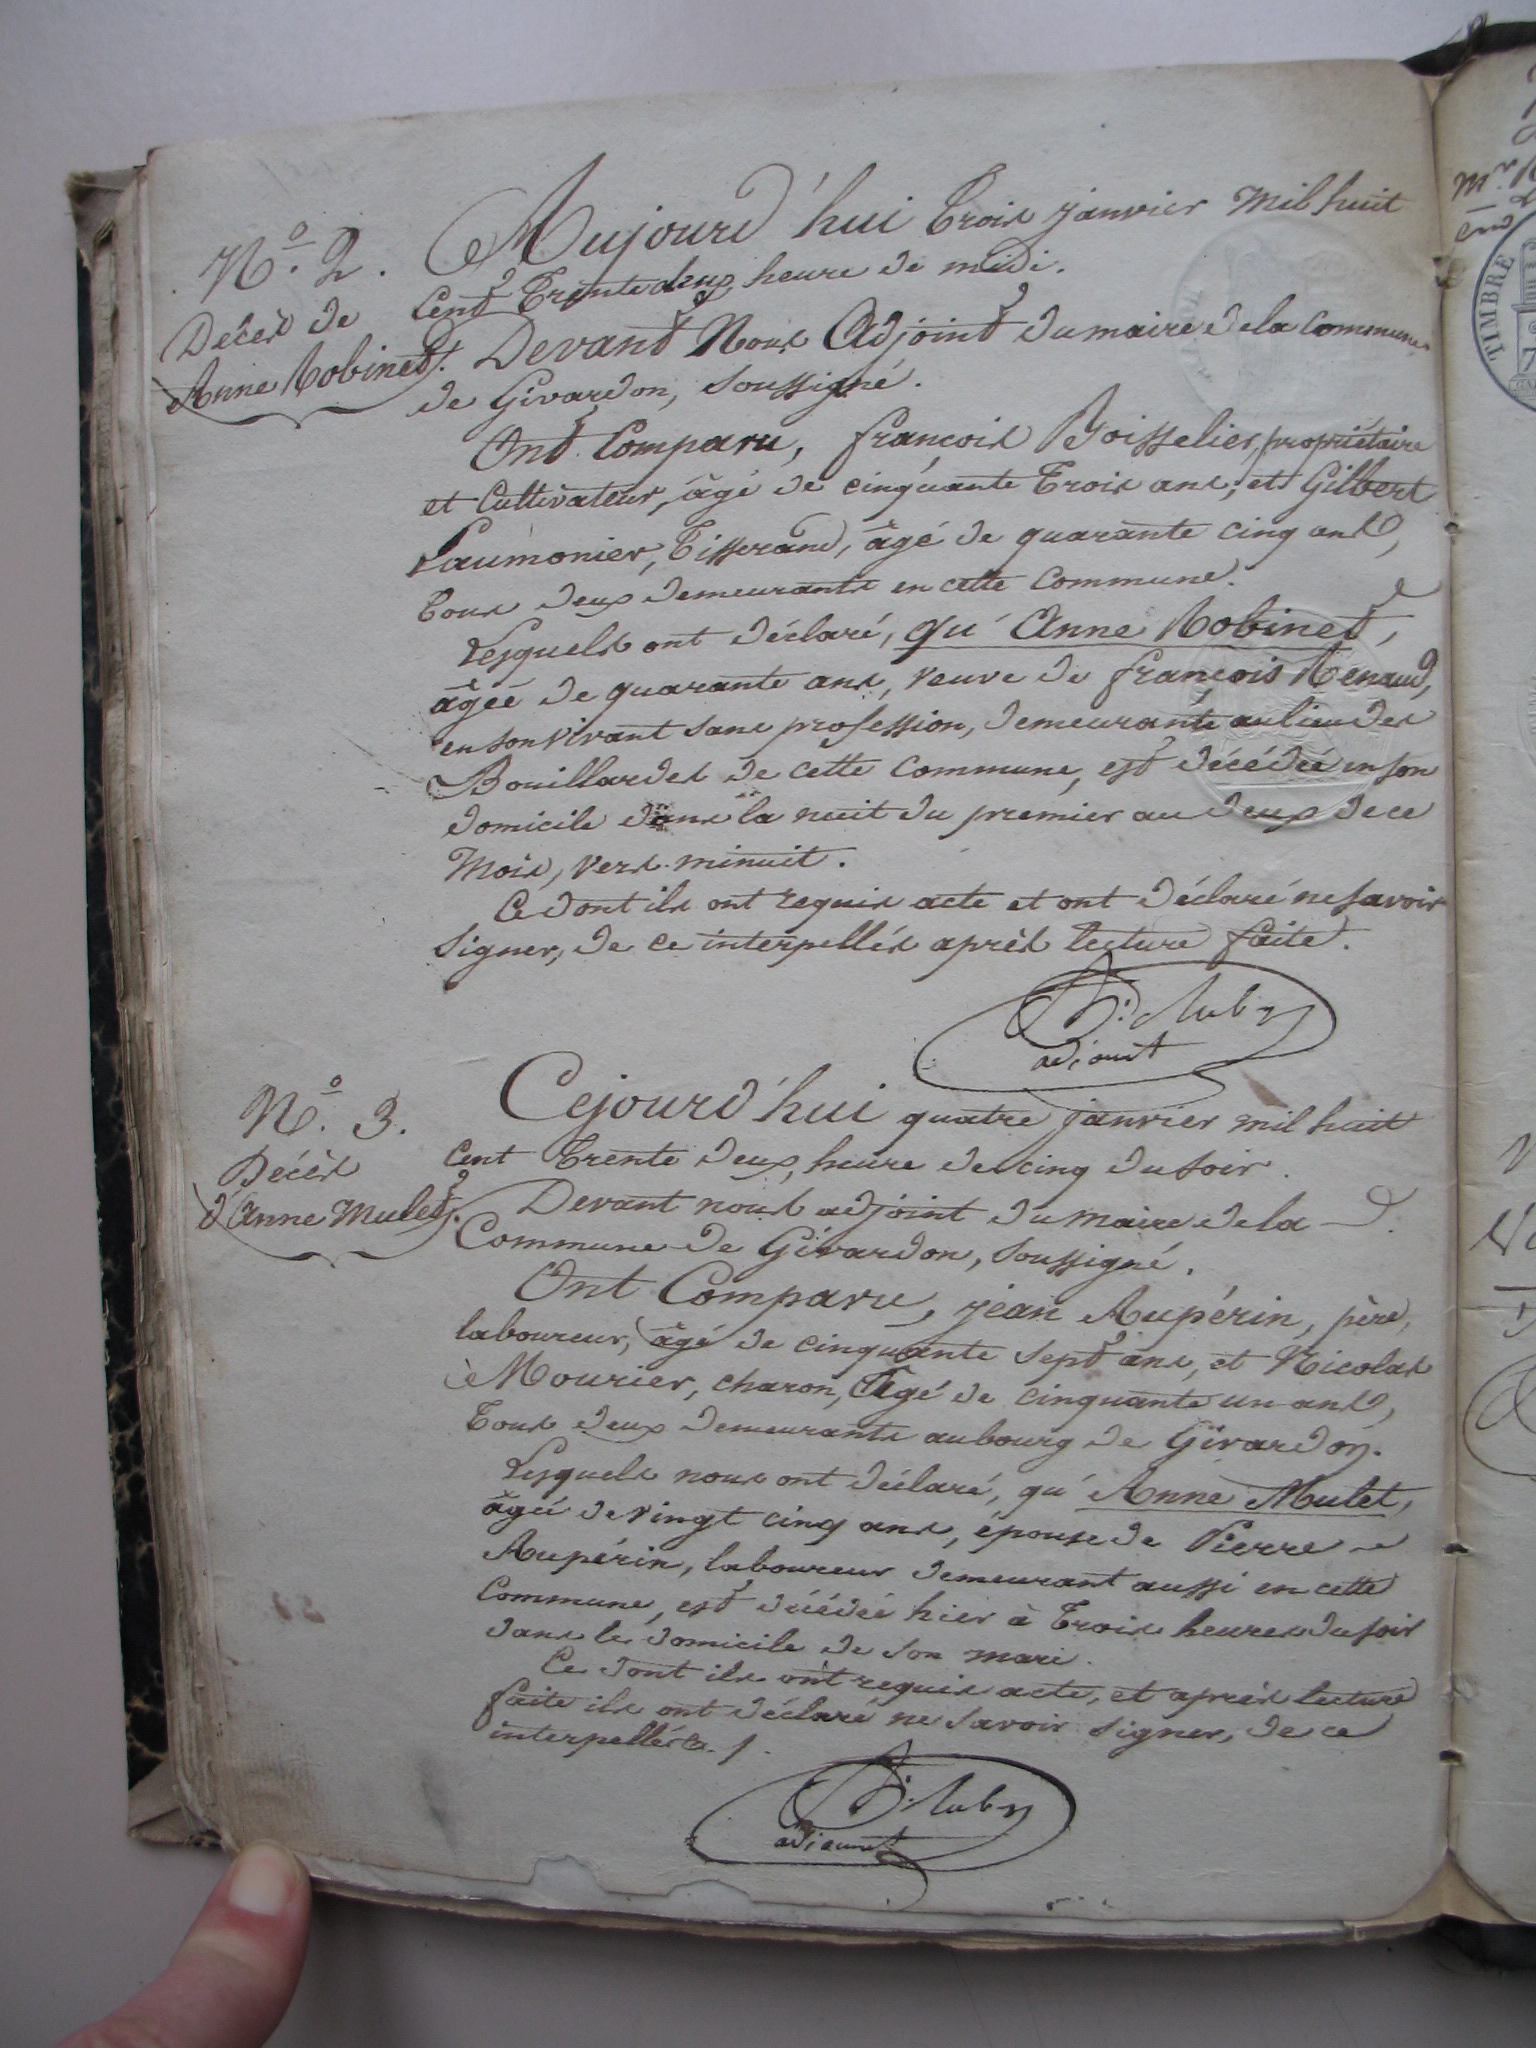 N.° 2.
Décès de
Anne Robinet.
Aujourd'hui trois janvier mil huit
cent trente deux, heure de midi.
Devant Nous Adjoint du maire de la commune
de Givardon, soussigné.
Ont Comparu, françois Boisselier, propriétaire
et Cultivateur, âgé de cinquante trois ans, et Gilbert
Laumonier, tisserand, âgé de quarante cinq ans,
tous deux demeurants en cette Commune.
Lesquels ont déclaré, qu'Anne Robinet,
âgée de quarante ans, veuve de françois Renaud,
en son vivant sans profession, demeurante au lieu des
Bouillardes de cette commune, est décédée en son
domicile dans la nuit du premier au deux de ce
Mois, vers minuit.
Ce dont ils ont requis acte et ont déclaré ne savoir
signer, de ce interpellés après lecture faite.
adjoint
N.° 3.
Décès
d'Anne Mulet.
Cejourd'hui quatre janvier mil huit
cent trente deux, heure de cinq du soir.
Devant nous adjoint du maire de la
Commune de Givardon, soussigné.
Ont Comparu, jean Aupérin, père,
laboureur, âgé de cinquante sept ans, et Nicolas
Mourier, charon, âgé de cinquante un ans,
tous deux demeurants au bourg de Givardon.
Lesquels nous ont déclaré, qu'Anne Mulet,
âgée de vingt cinq ans, épouse de Pierre
Aupérin, laboureur demeurant aussi en cette
Commune, est décédée hier à trois heures du soir
dans le domicile de son mari.
Ce dont ils ont requis acte, et après lecture
faite ils ont déclaré ne savoir signer, de ce
interpellés.
adjoint
TIMBRE